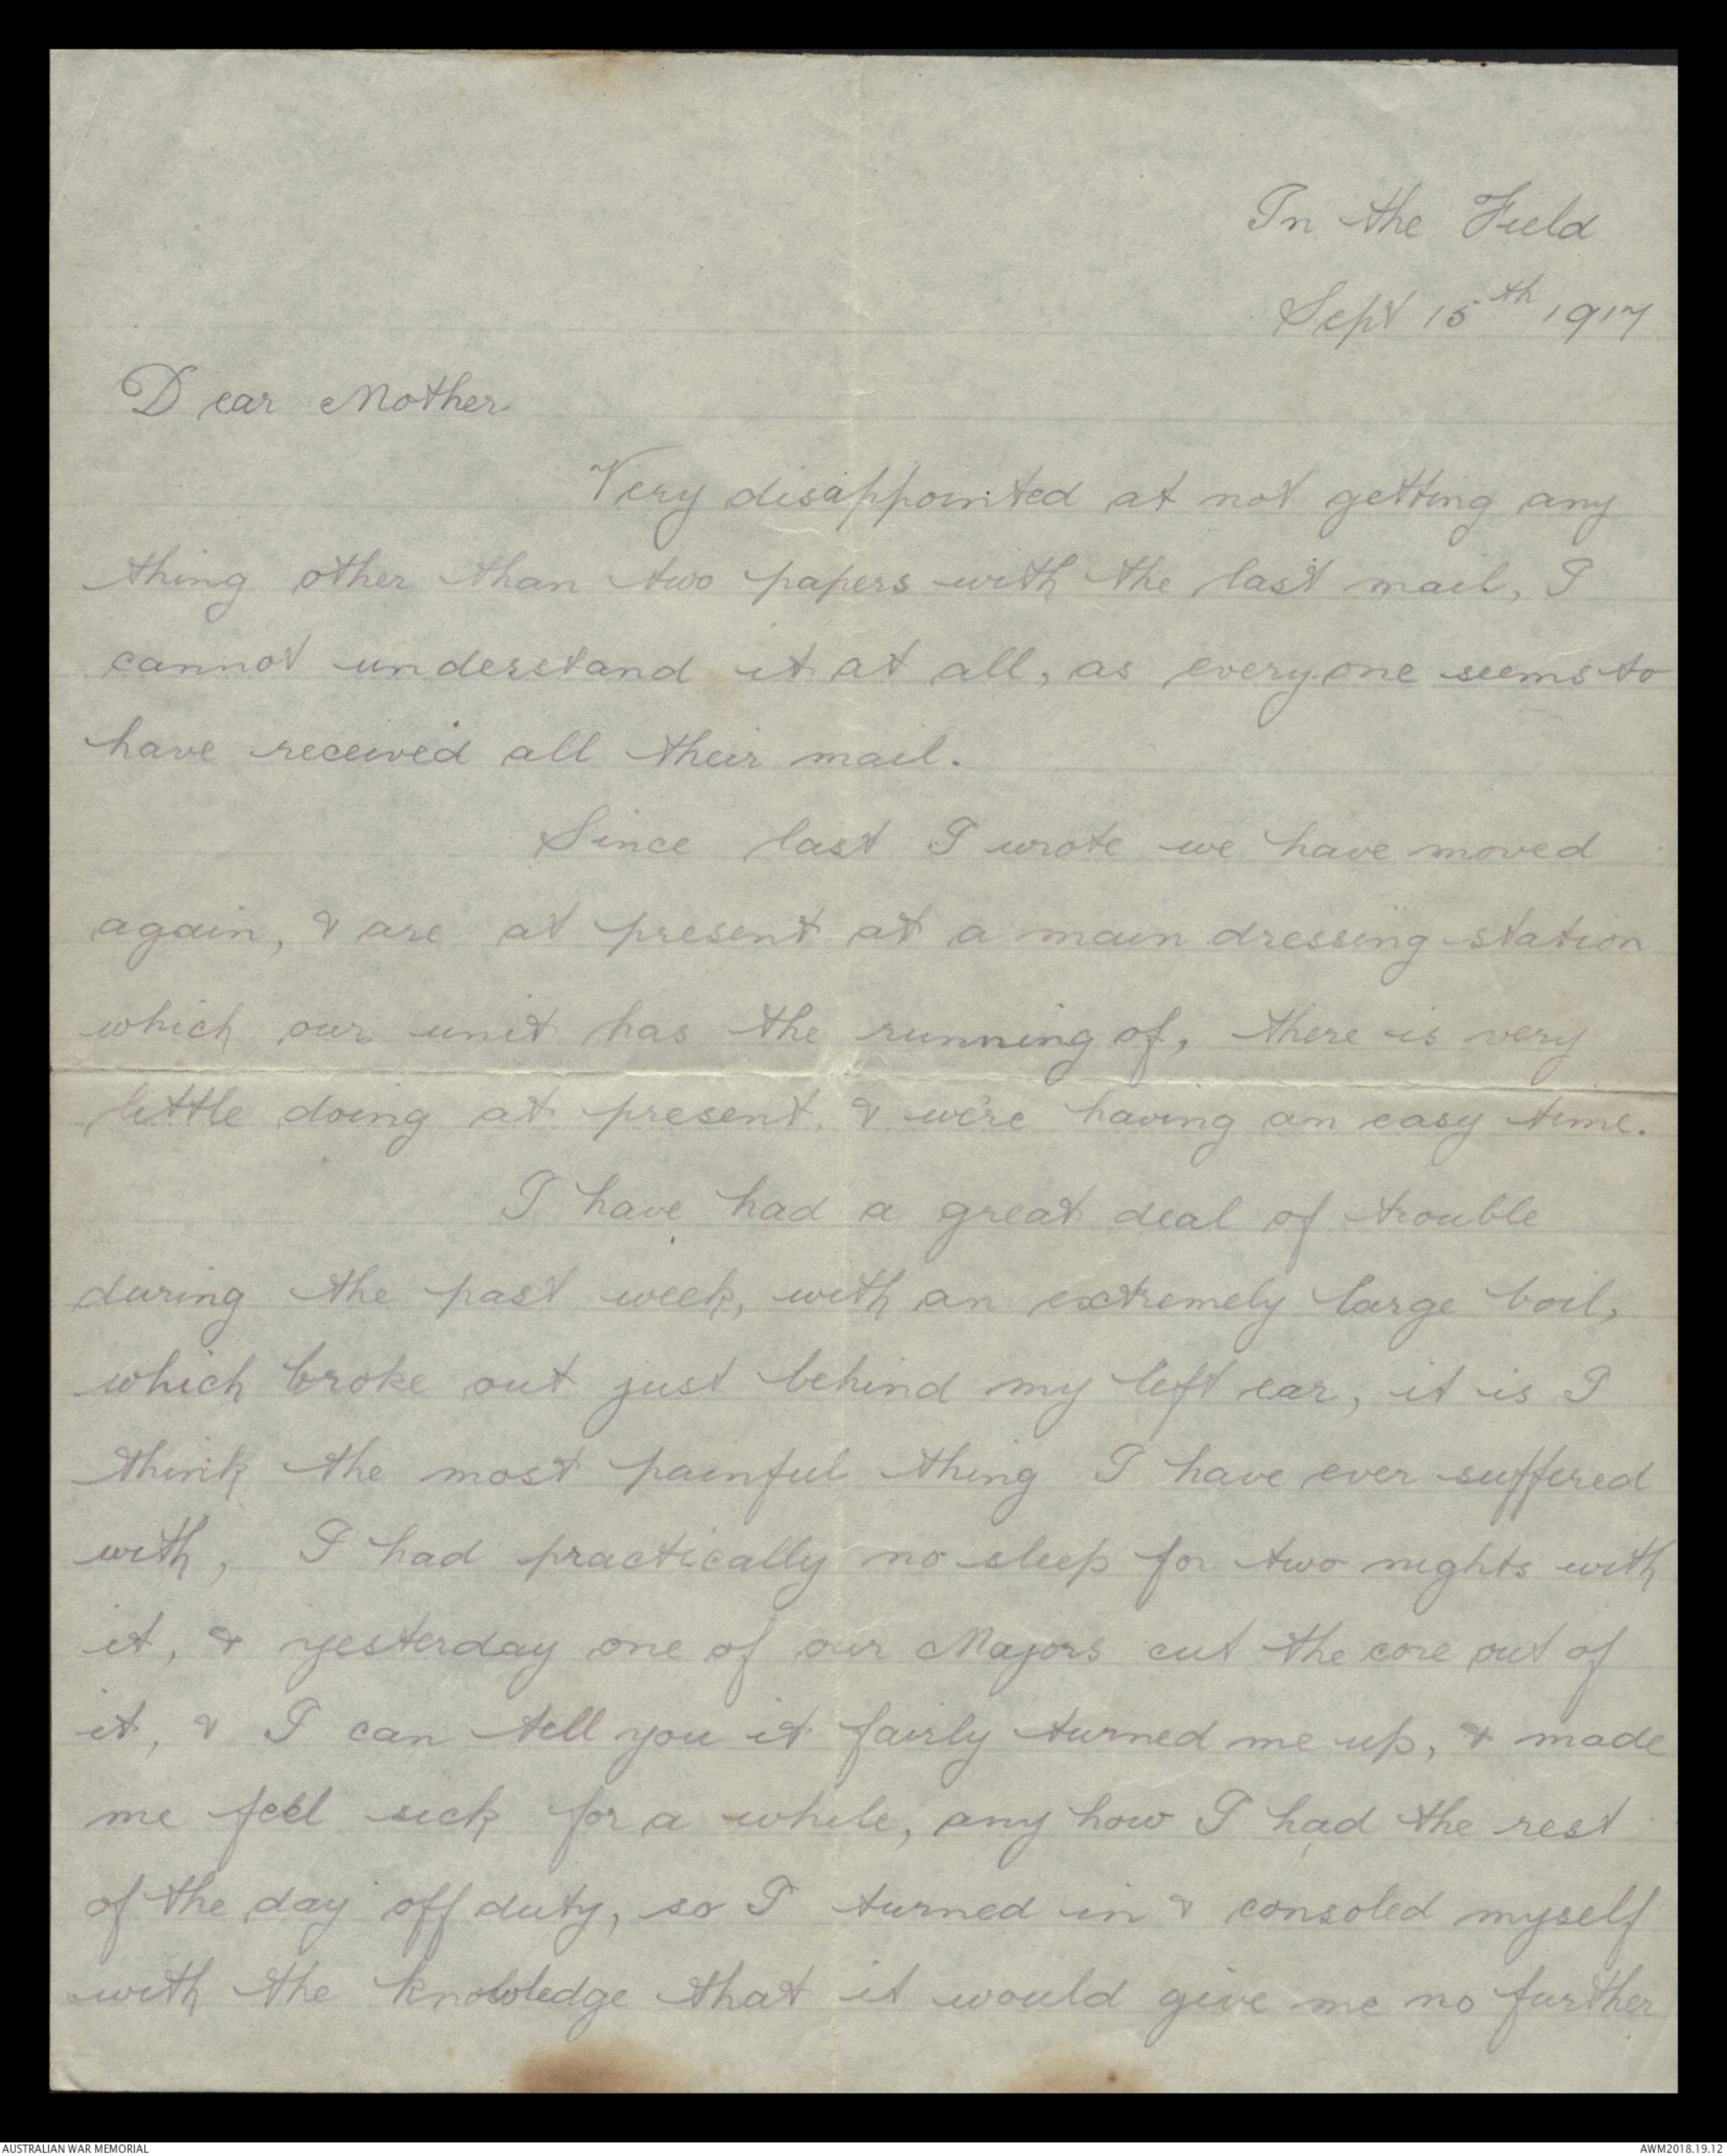 In the Field
Sept 15th 1917
Dear Mother
Very disappointed at not getting any
thing other than two papers with the last mail, I
cannot understand it at all, as everyone seems to
have received all their mail.
Since last I wrote we have moved
again, & are at present at a main dressing station
which our unit has the running of, there is very
little doing at present, & we're having an easy time.
I have had a great deal of trouble
during the past week, with an extremely large boil,
which broke out just behind my left ear, it is I
think the most painful thing I have ever suffered
with, I had practically no sleep for two nights with
it, & yesterday one of our Majors cut the core out of
it, & I can tell you it fairly turned me up, & made
me feel sick for a while, any how I had the rest
of the day off duty, so I turned in & consoled myself
with the knowledge that it would give me no further
AUSTRALIAN WAR MEMORIAL
AWM2018.19.12